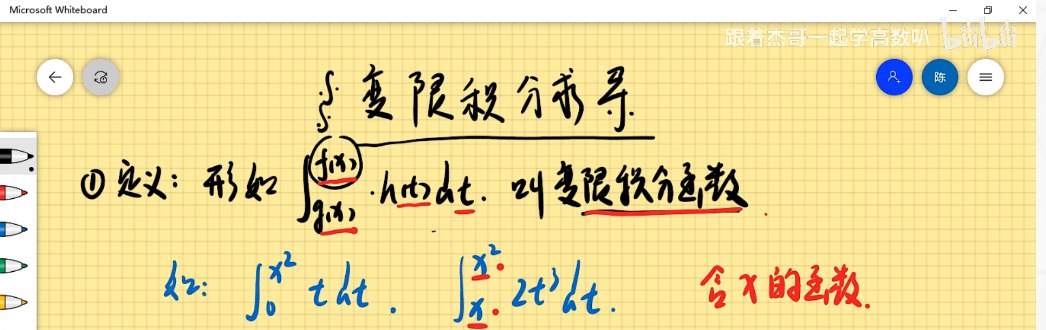 Microsoft Whiteboard
跟着杰哥一起学高数叭 bilibili
陈
§ 变限积分求导.
① 定义: 形如 ∫_{g(x)}^{f(x)} · h(t) dt. 叫变限积分函数.
如: ∫_0^{x²} t dt. ∫_x^{x²} 2t³ dt. 含x的函数.